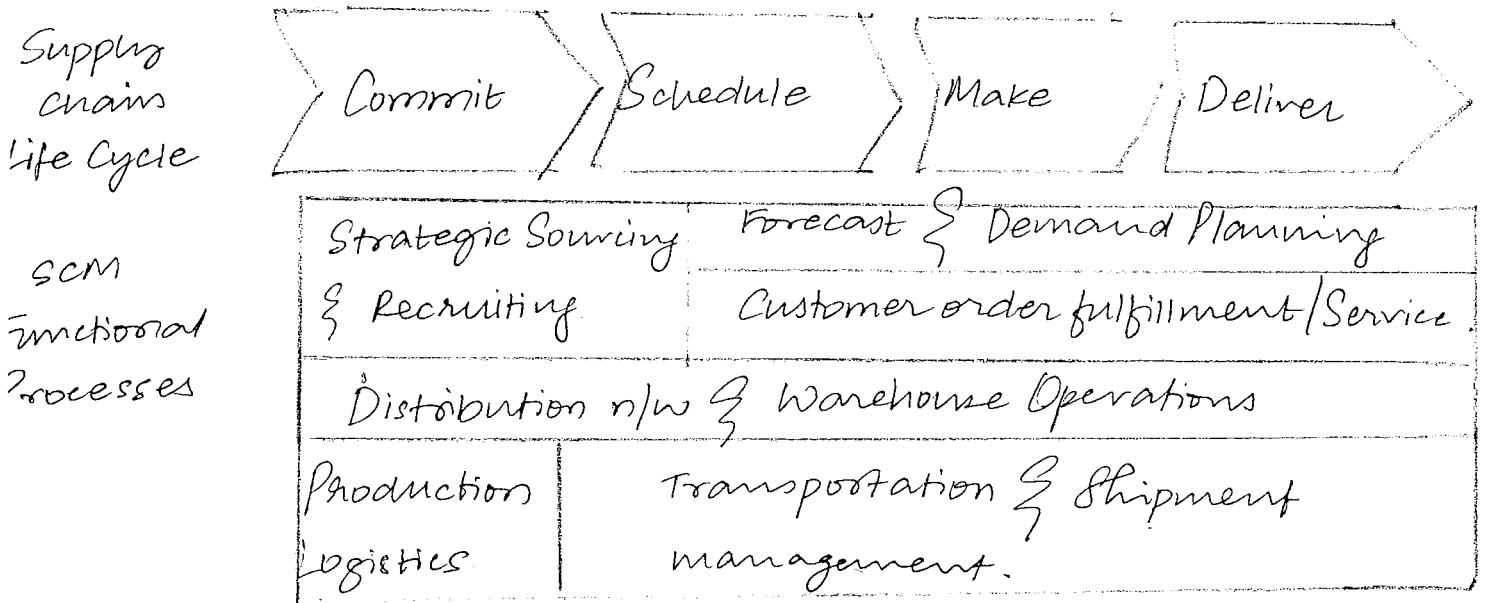 Supply
chains
Life Cycle
Commit
Schedule
Make
Deliver
SCM
Functional
Processes
Strategic Sourcing
& Recruiting
Forecast & Demand Planning
Customer order fulfillment/Service.
Distribution n/w & Warehouse Operations
Production
Logistics
Transportation & Shipment
management.